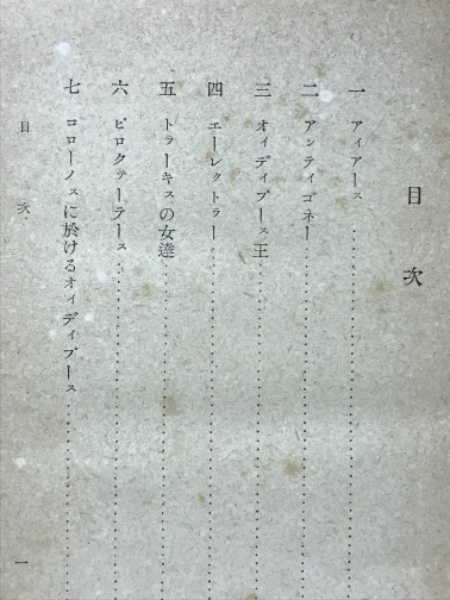 目次
一 アィアース
二 アンティゴネー
三 オィディプース王
四 エーレクトラー
五 トラーキスの女達
六 ピロクテーテース
七 コローノスに於けるオィディプース
目次
一